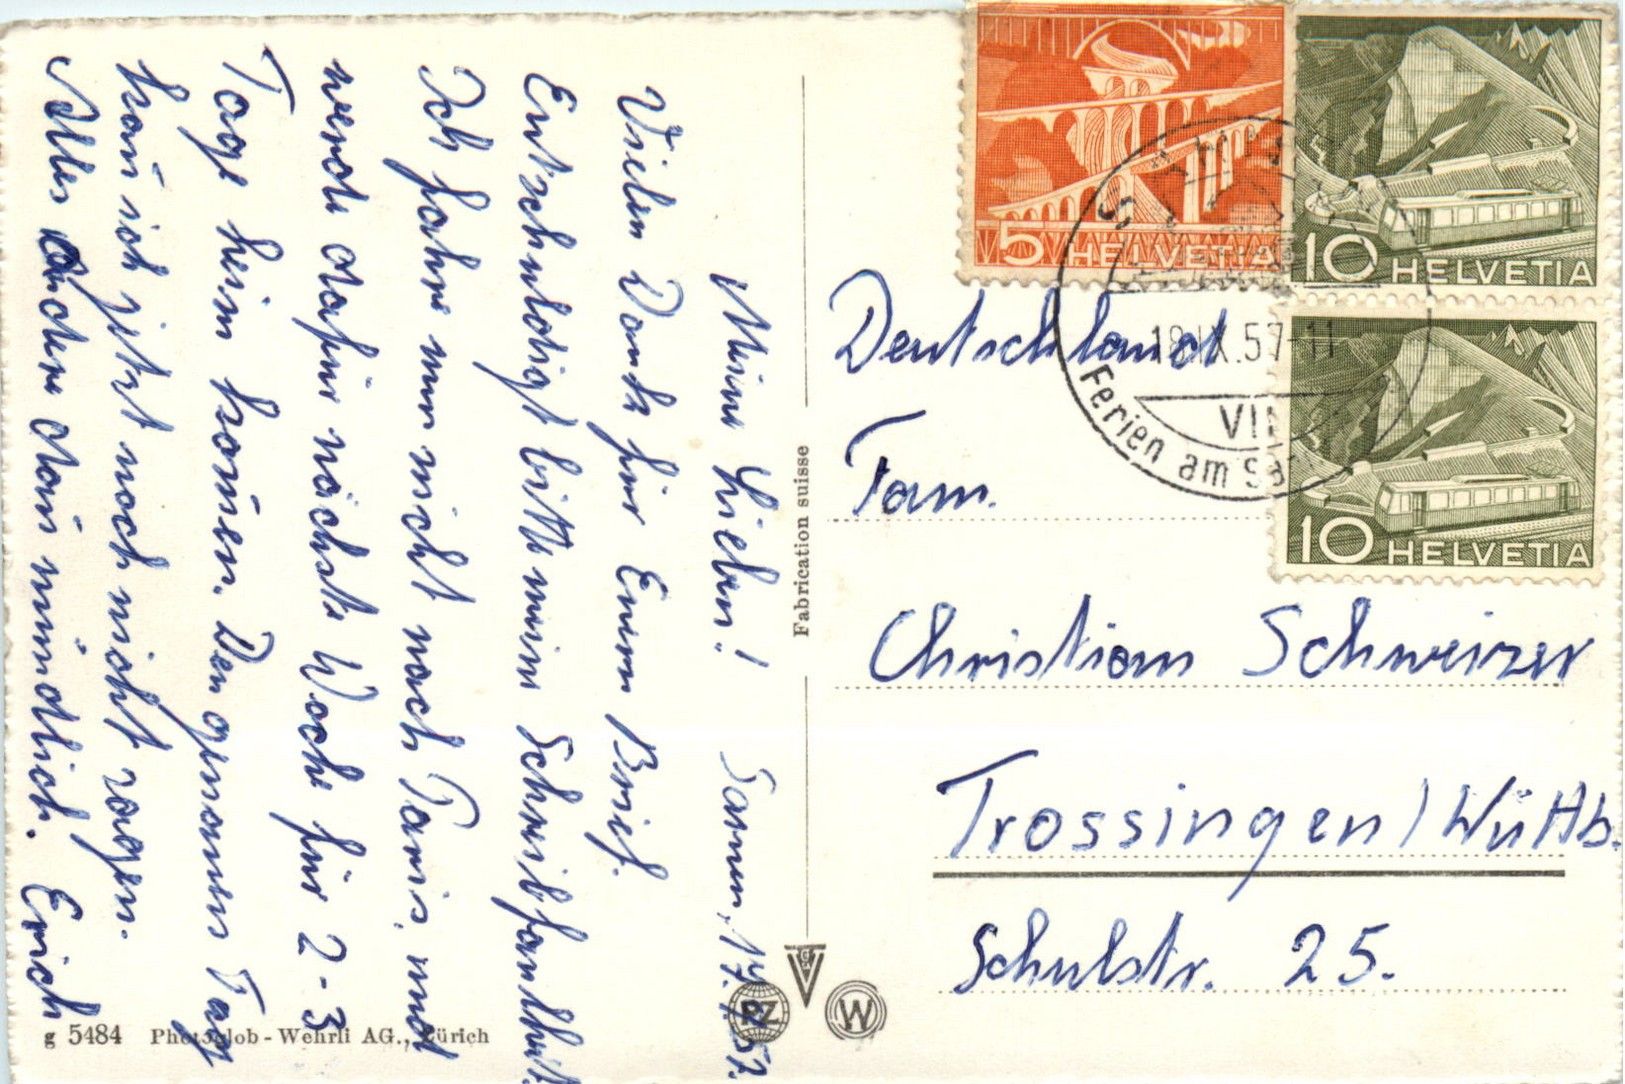 Sarnen, 17.9.57.
Meine Lieben!
Vielen Dank für Euern Brief.
Entschuldigt bitte meine Schreibfaulheit.
Ich fahre nun nicht nach Paris und
werde dafür nächste Woche für 2-3
Tage heim kom̄en. Den genauen Tag
kan̄ ich jetzt noch nicht sagen.
Alles andere dan̄ mündlich. Erich
g 5484 Photoglob-Wehrli AG., Zürich
Fabrication suisse
PZ
W
5 HELVETIA
10 HELVETIA
10 HELVETIA
18.IX.57-11
VII
Ferien am Sa
Deutschland
Fam.
Christian Schweizer
Trossingen/Württb.
Schulstr. 25.